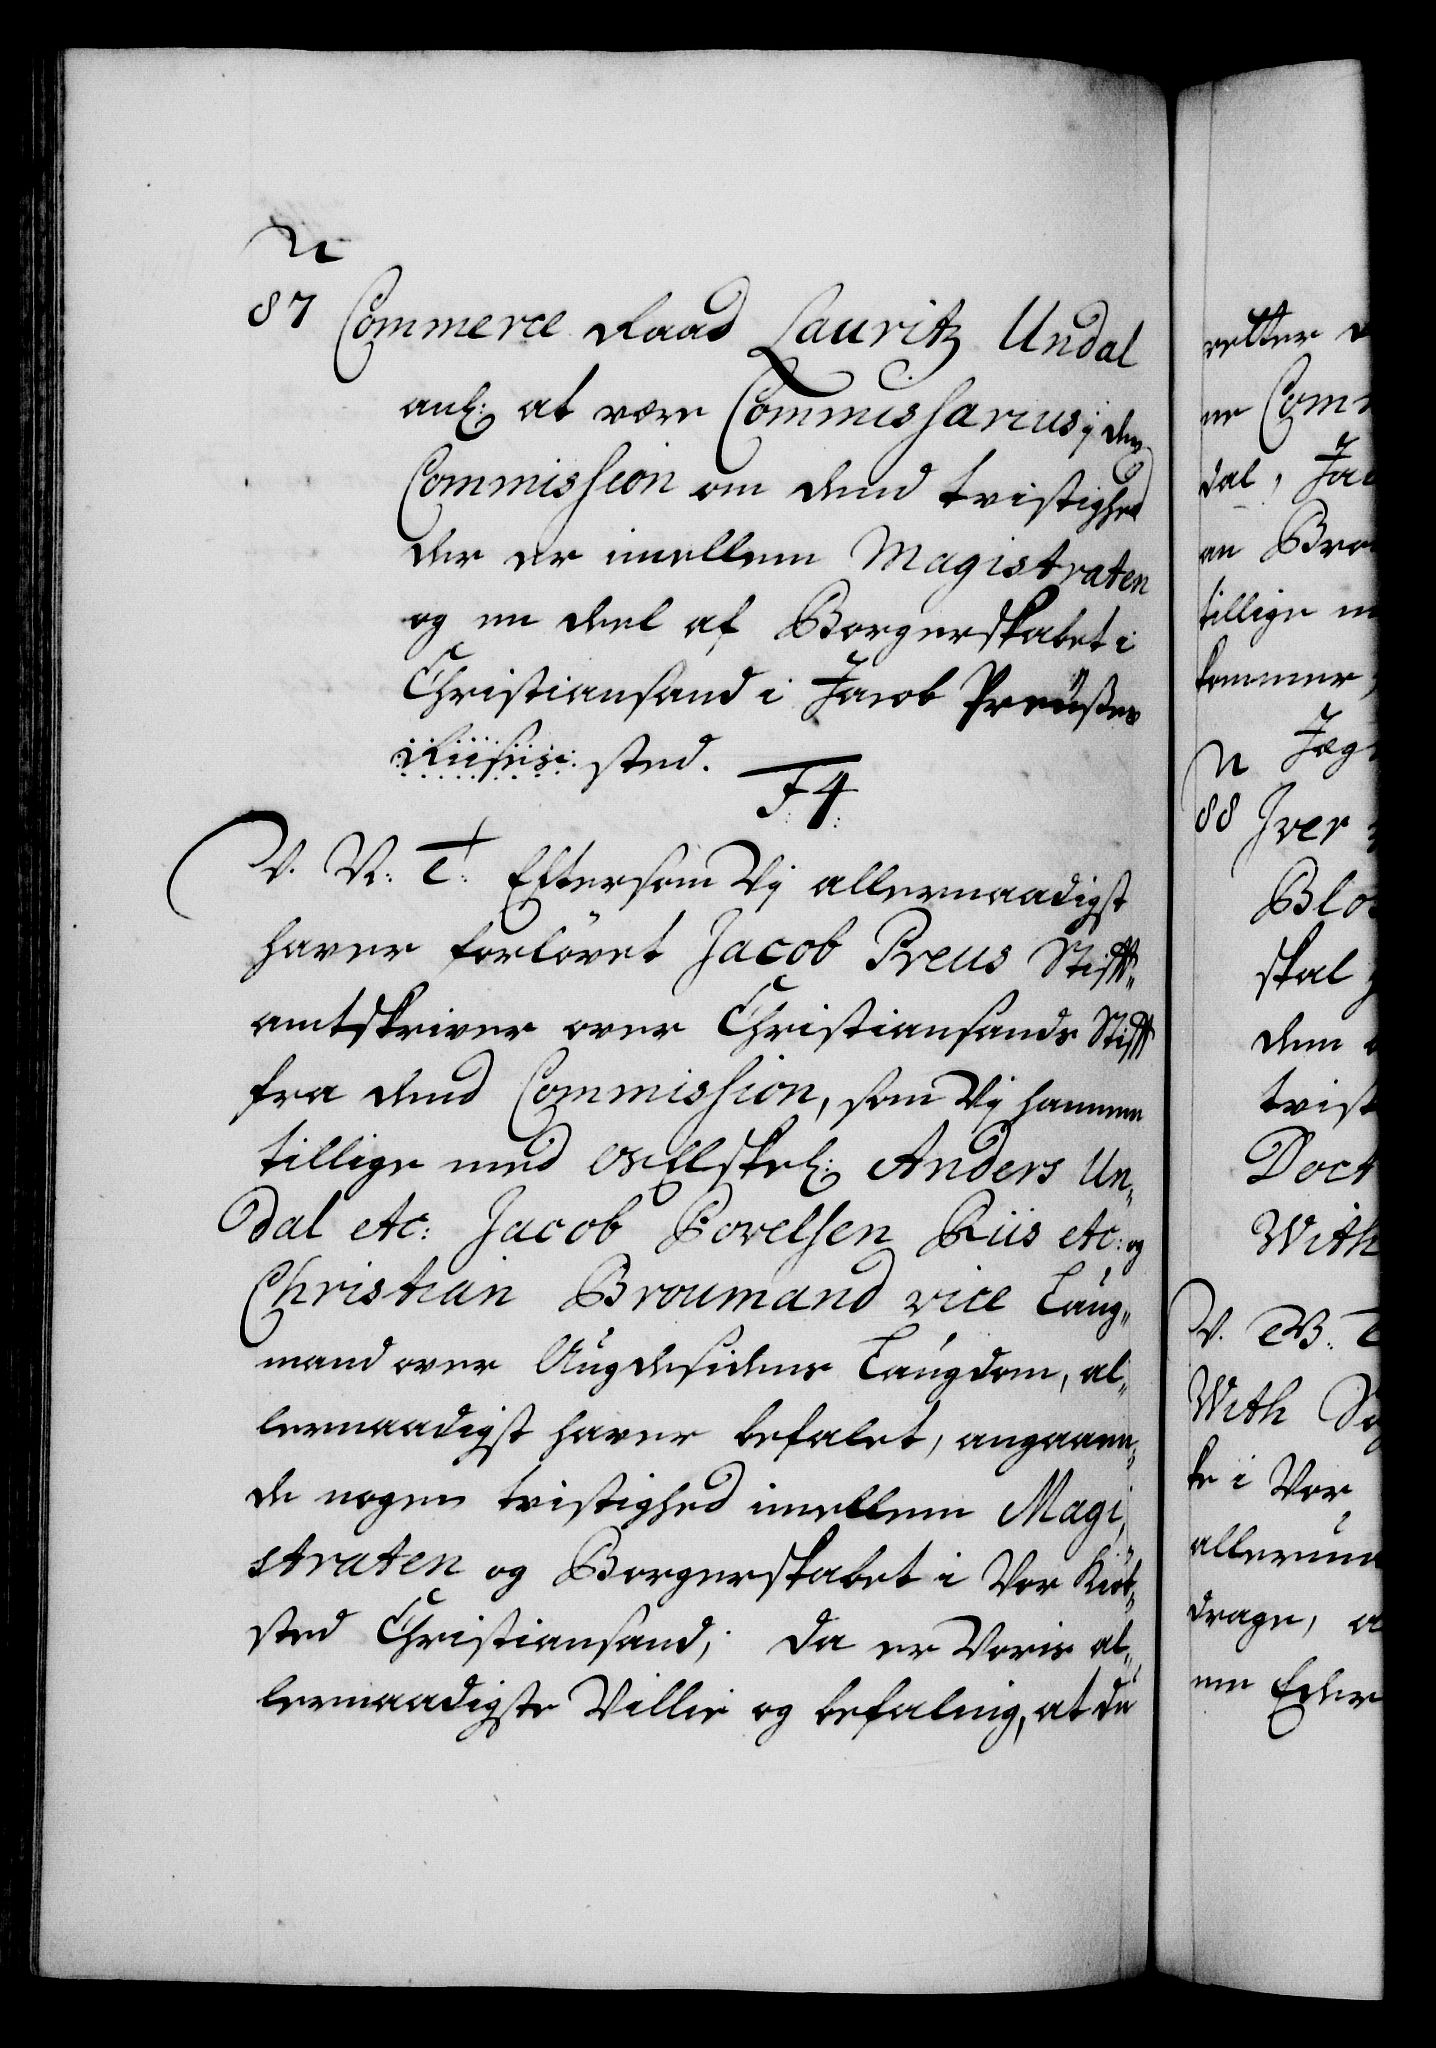 N
87 Commerce Raad Lauritz Undal
anl: at være Commissarius i den
Commission om dend tvistighed
der er imellem Magistraten
og en deel af Borgerskabet i
Christiansand i Jacob Preüsses
sted.
F4
V. N. T. Eftersom Vj allernaadigst
haver forlövet Jacob Preus Stifft„
amtskriver over Christiansands Stifft
fra dend Commission, som Vj hannem
tillige med Anders Un„
dal etc: Jacob Povelsen Riis etc: og
Christian Broumand vice Laug„
mand over Augdesidens Laugdom, al„
lernaadigst haver befalet, angaaen„
de nogen tvistighed imellem Magi„
straten og Borgerskabet i Vor Kiöb„
sted Christiansand; da er Voris al„
lernaadigste Villie og befaling, at du
retter
ne Com
dal, Jac
an Bro
tillige m
kommer
N
88 Iver
Blo
skal
dem
tvist
Doct
With
With
ke i Vor
allerun
drage, a